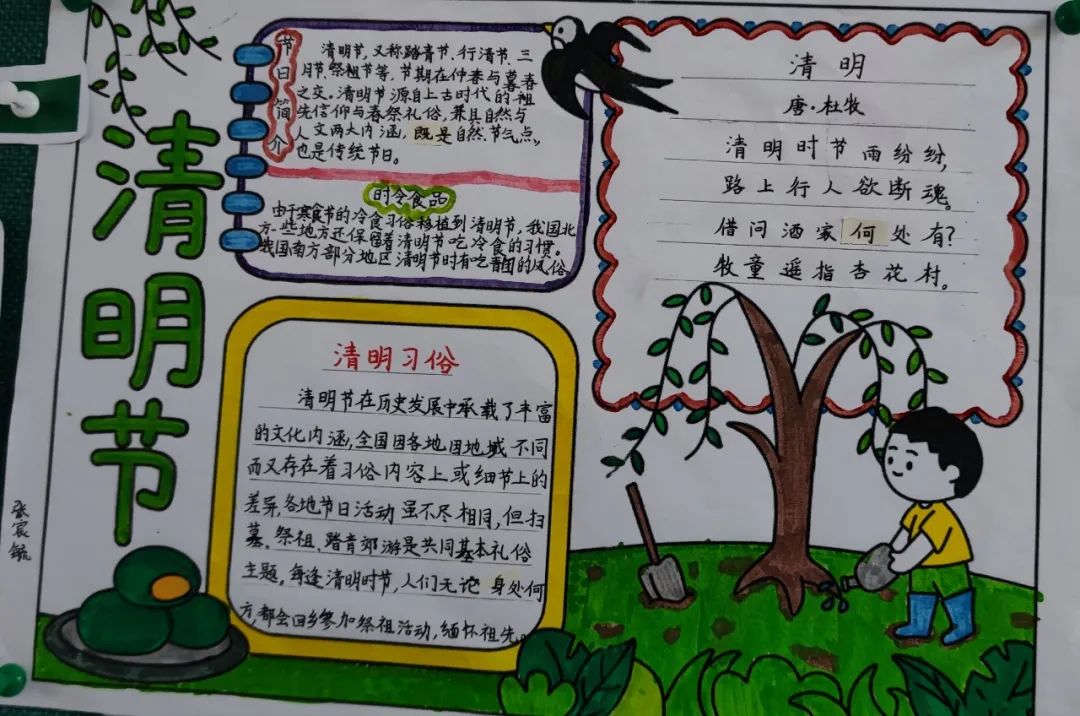 清明节
节日简介
清明节,又称踏青节、行清节、三
月节、祭祖节等,节期在仲春与暮春
之交。清明节源自上古时代的祖
先信仰与春祭礼俗,兼具自然与
人文两大内涵,既是自然节气点,
也是传统节日。
时令食品
由于寒食节的冷食习俗移植到清明节,我国北
方一些地方还保留着清明节吃冷食的习惯。
我国南方部分地区清明节时有吃青团的风俗
清明
唐·杜牧
清明时节雨纷纷,
路上行人欲断魂。
借问酒家何处有?
牧童遥指杏花村。
清明习俗
清明节在历史发展中承载了丰富
的文化内涵,全国因各地因地域不同
而又存在着习俗内容上或细节上的
差异,各地节日活动虽不尽相同,但扫
墓、祭祖、踏青郊游是共同基本礼俗
主题。每逢清明时节,人们无论身处何
方,都会回乡参加祭祖活动,缅怀祖先。
张宸毓